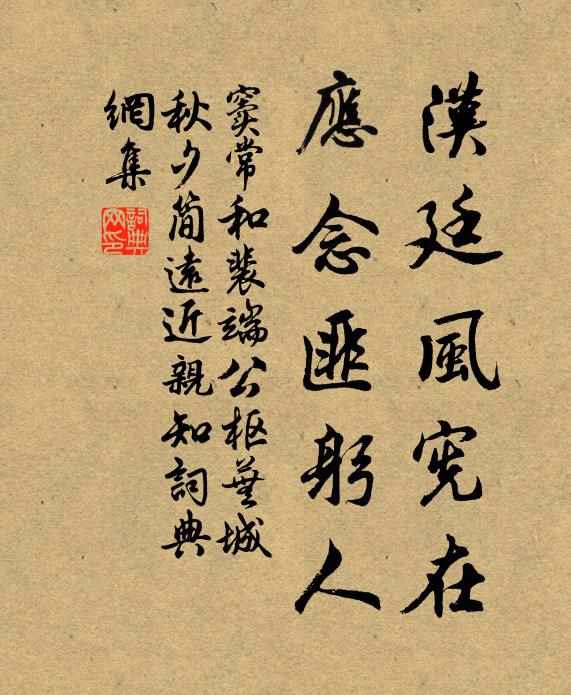 漢廷風宪在
應念匪躬人
窦常和裴端公枢蕪城
秋夕簡遠近親知詞典
網集
詞典网印